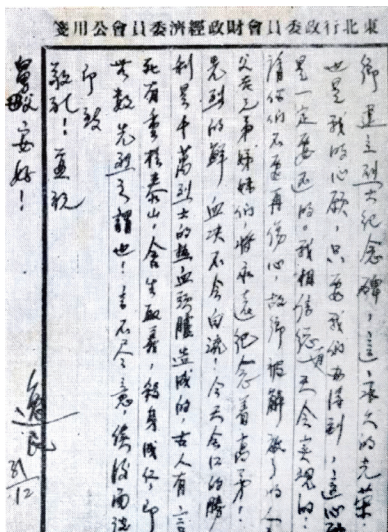 東北行政委員會財政經濟委員會公用箋
鄉建立烈士紀念碑,這永久的光荣
也是我的心願,只要我們办得到,這心願
是一定要还的。我相信總有一天会实現的。
請你們不要再傷心,故鄉被解放了的人
父老兄弟姊妹们,將永遠紀念着高矛!
先烈的鮮血决不会白流!今天全囗的勝
利是千萬烈士的热血頭臚造成的,古人有言
死有重於泰山,舍生取義,殺身成仁,即
无数先烈之謂也!言不尽意候後面談
即致
敬礼!並祝
舅母安好!
逸民
31/12